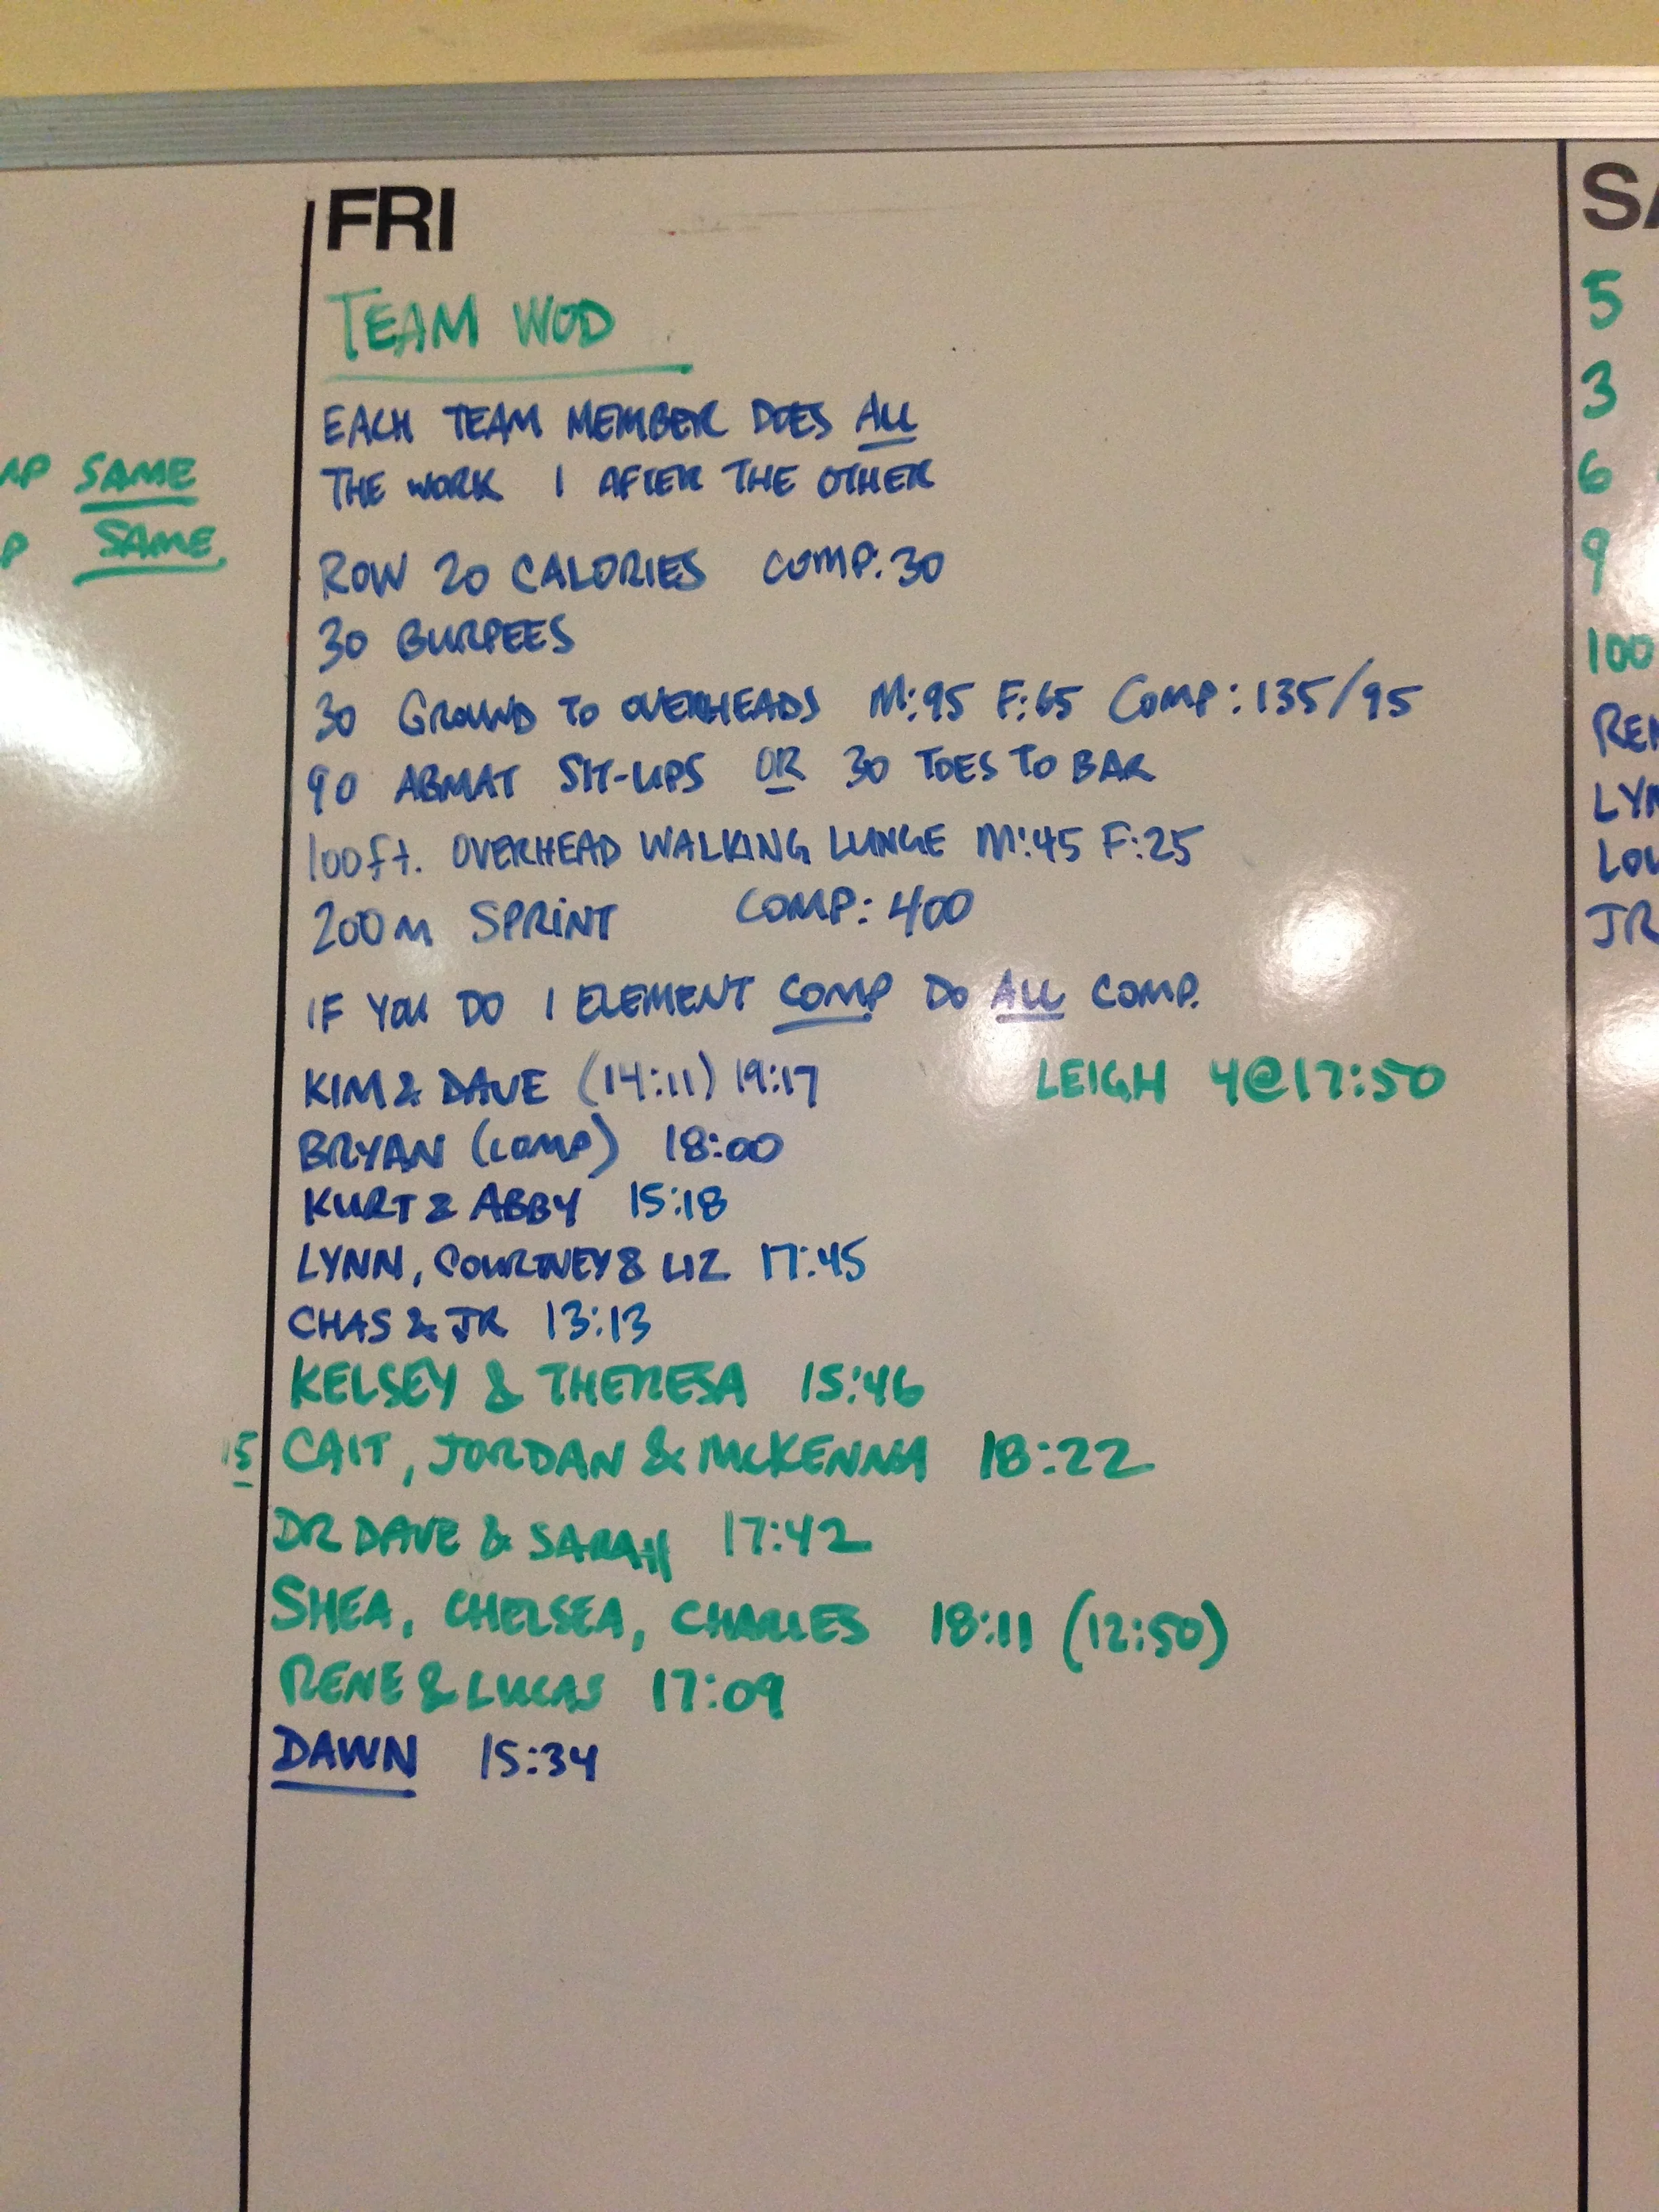 FRI
TEAM WOD
EACH TEAM MEMBER DOES ALL
THE WORK 1 AFTER THE OTHER
ROW 20 CALORIES COMP: 30
30 BURPEES
30 GROUND TO OVERHEADS M:95 F:65 COMP: 135/95
90 ABMAT SIT-UPS OR 30 TOES TO BAR
100ft. OVERHEAD WALKING LUNGE M:45 F:25
200m SPRINT COMP: 400
IF YOU DO 1 ELEMENT COMP DO ALL COMP.
KIM & DAVE (14:11) 19:17 LEIGH 4@17:50
BRYAN (COMP) 18:00
KURT & ABBY 15:18
LYNN, COURTNEY & LIZ 17:45
CHAS & JR 13:13
KELSEY & THERESA 15:46
CAIT, JORDAN & MCKENNA 18:22
DR DAVE & SARAH 17:42
SHEA, CHELSEA, CHARLES 18:11 (12:50)
RENE & LUCAS 17:09
DAWN 15:34
SAME
SAME
5
3
6
9
100
JR